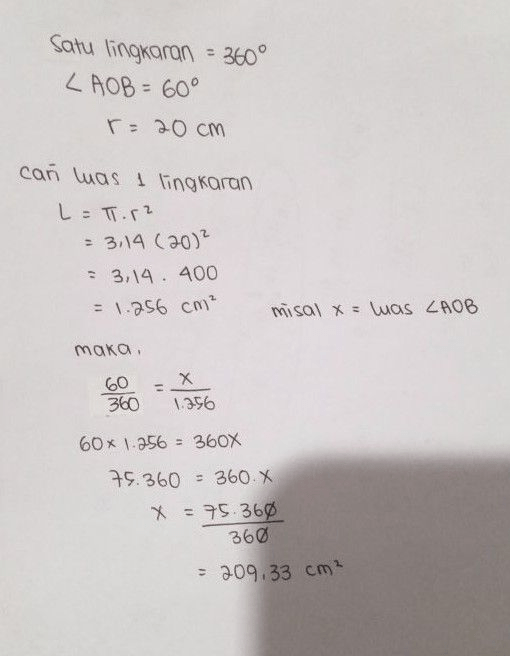 Satu lingkaran = 360°
∠ AOB = 60°
r = 20 cm
cari luas 1 lingkaran
L = π.r²
= 3,14 (20)²
= 3,14 . 400
= 1.256 cm²
misal x = luas ∠AOB
maka,
60/360 = x/1.256
60 x 1.256 = 360x
75.360 = 360.x
x = 75.360/360
= 209,33 cm²